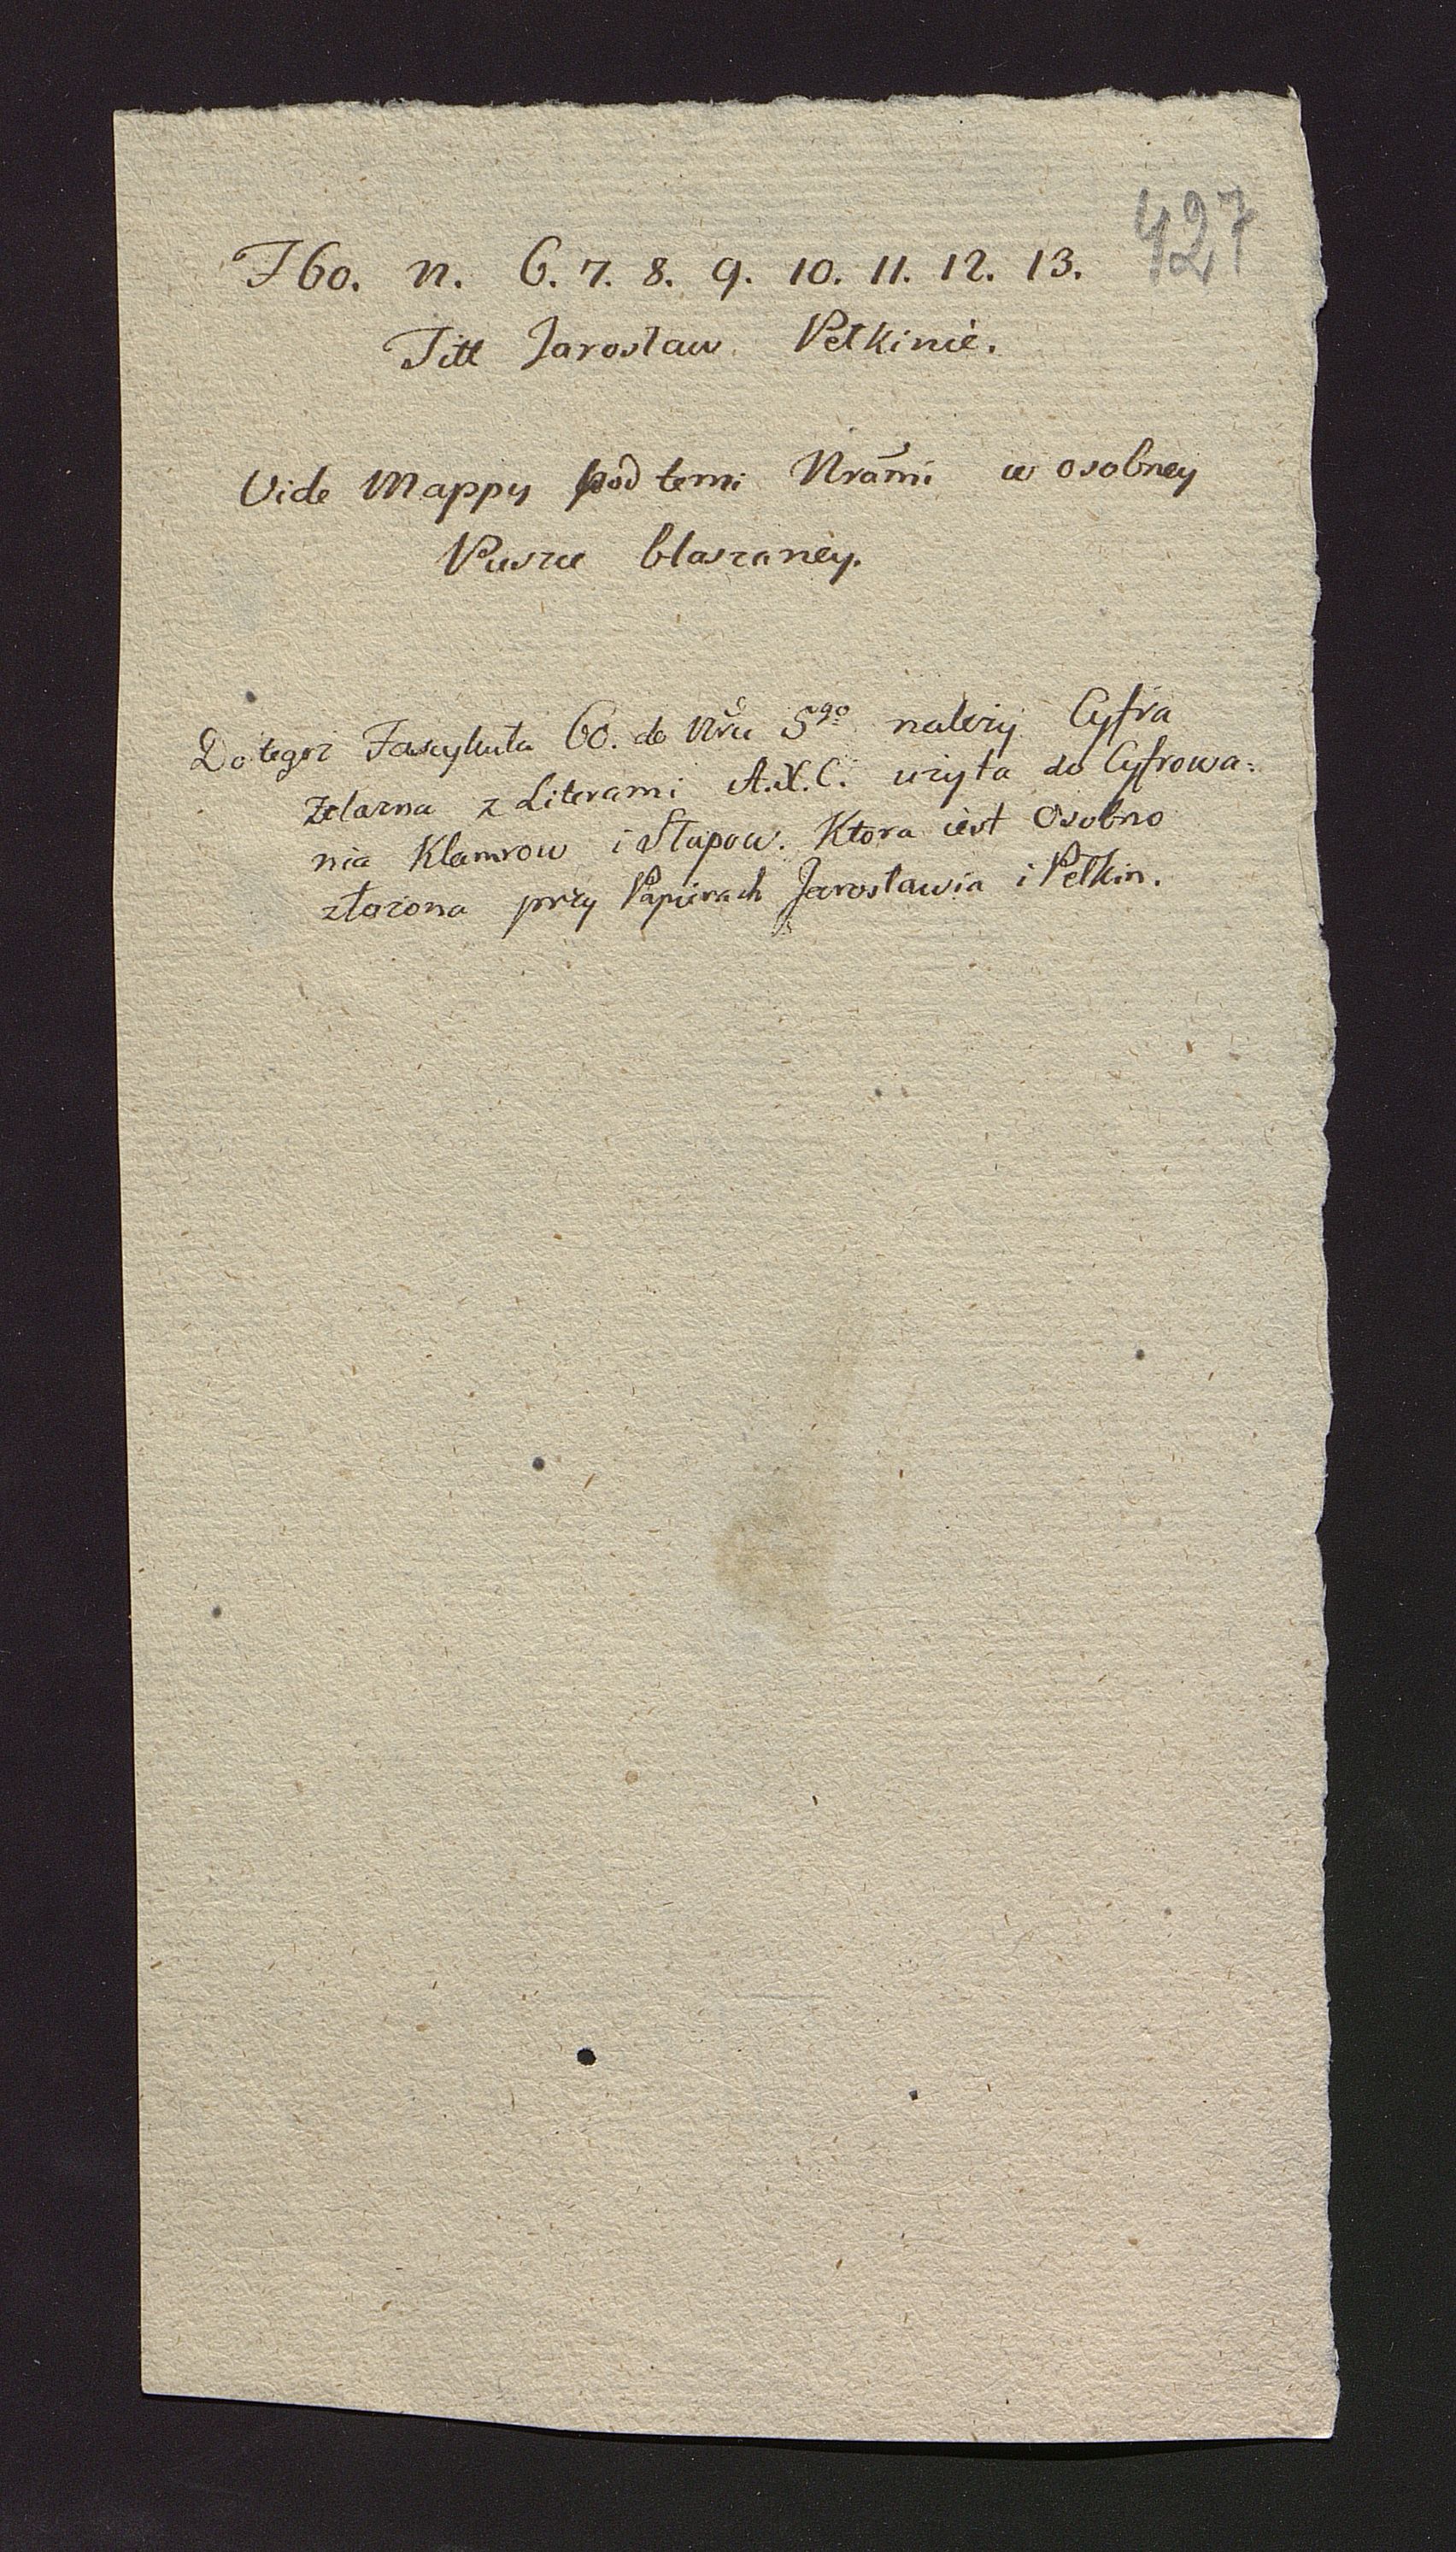 427
F 60. n. 6. 7. 8. 9. 10. 11. 12. 13.
Titt Jarosław Pełkinie.
Vide Mappy pod temi Nrami w osobney
Puszce blaszaney.
Do tegoż Fascykułu 60. do Nru 5go należy Cyfra
Żelazna z Literami A.X.C. użyta do Cyfrowa:
nia Klamrow i Słupow. Ktora iest Osobno
złożona przy Papierach Jarosławia i Pełkin.